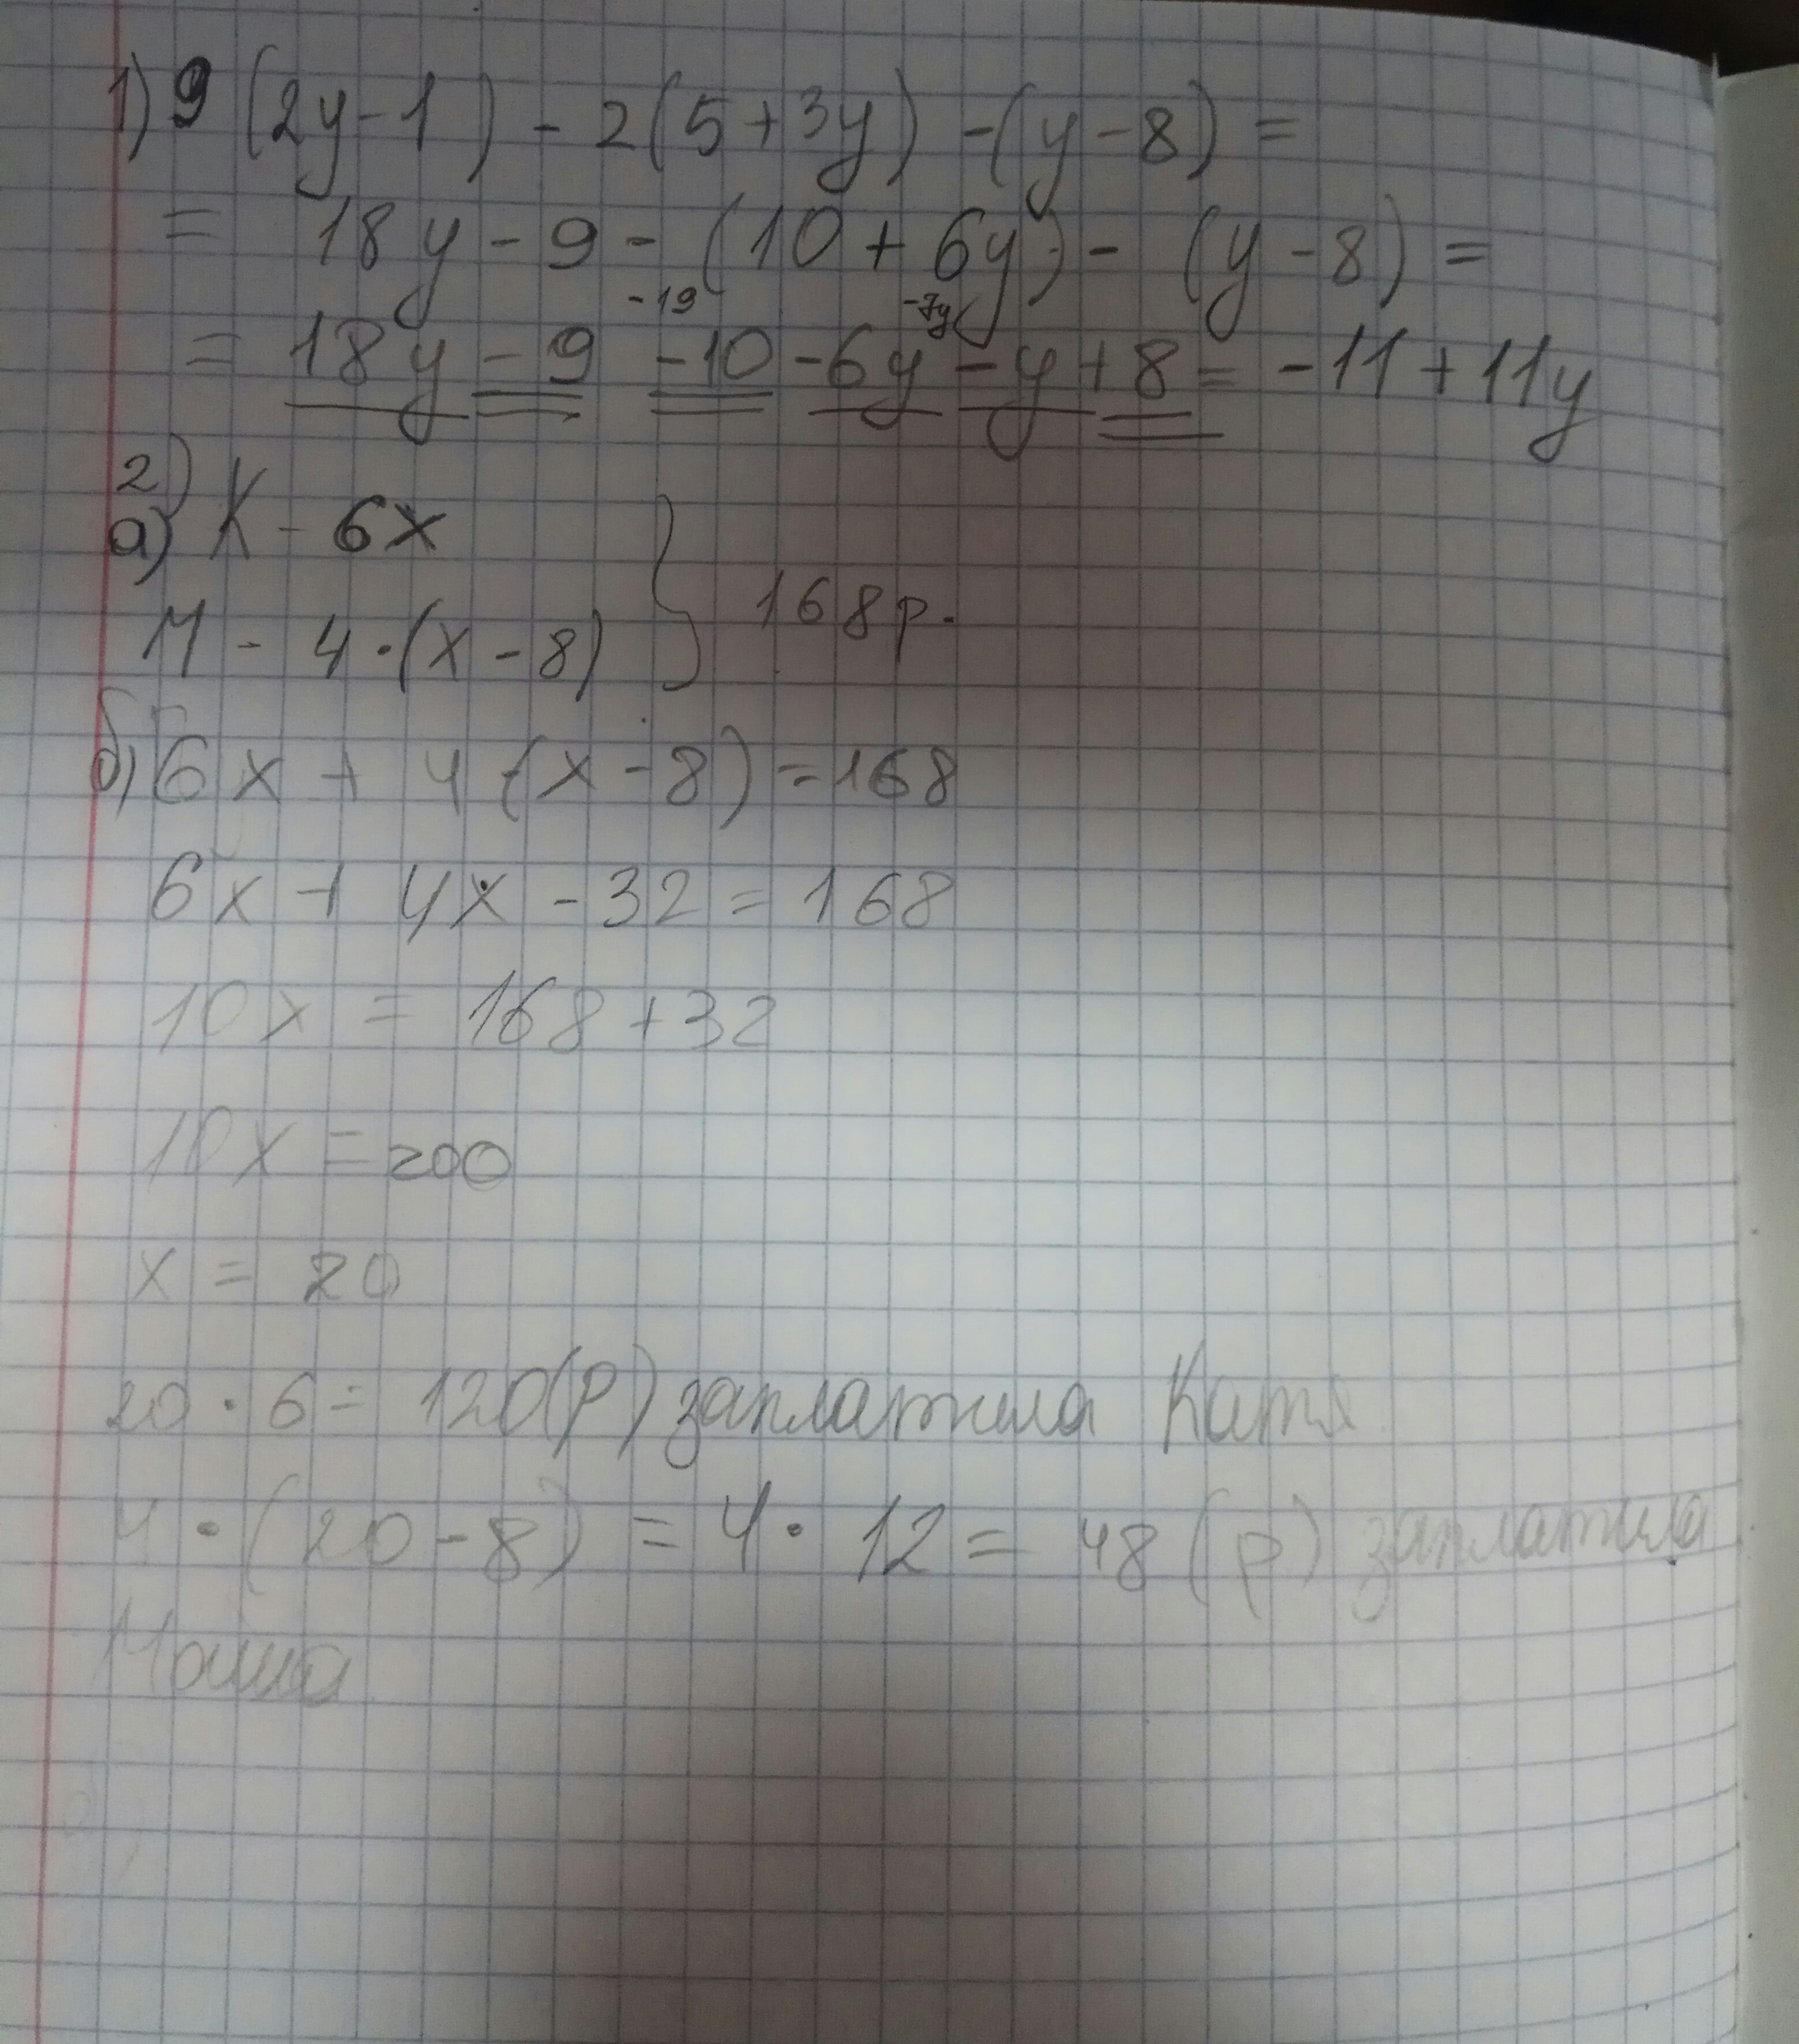 1) 9 (2y - 1) - 2(5 + 3y) - (y - 8) =
= 18y - 9 - (10 + 6y) - (y - 8) =
-19 -7y
= 18y - 9 - 10 - 6y - y + 8 = -11 + 11y
2)
а) К - 6х
М - 4·(х - 8) } 168 р.
б) 6х + 4·(х - 8) = 168
6х + 4х - 32 = 168
10х = 168 + 32
10х = 200
х = 20
20 · 6 = 120(р) заплатила Катя
4 · (20 - 8) = 4 · 12 = 48 (р) заплатила
Маша